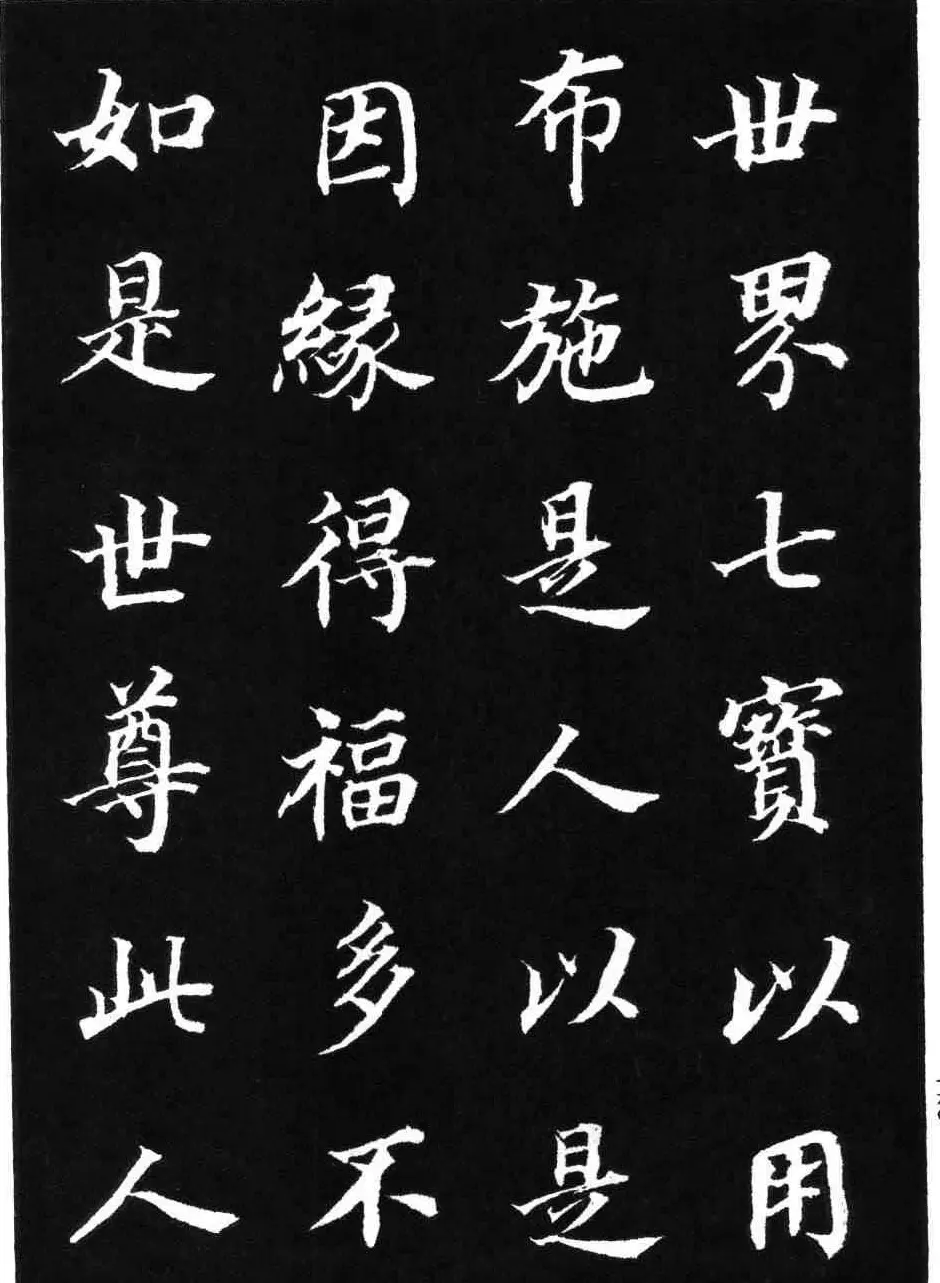 世界七寶以用
布施是人以是
因緣得福多不
如是世尊此人